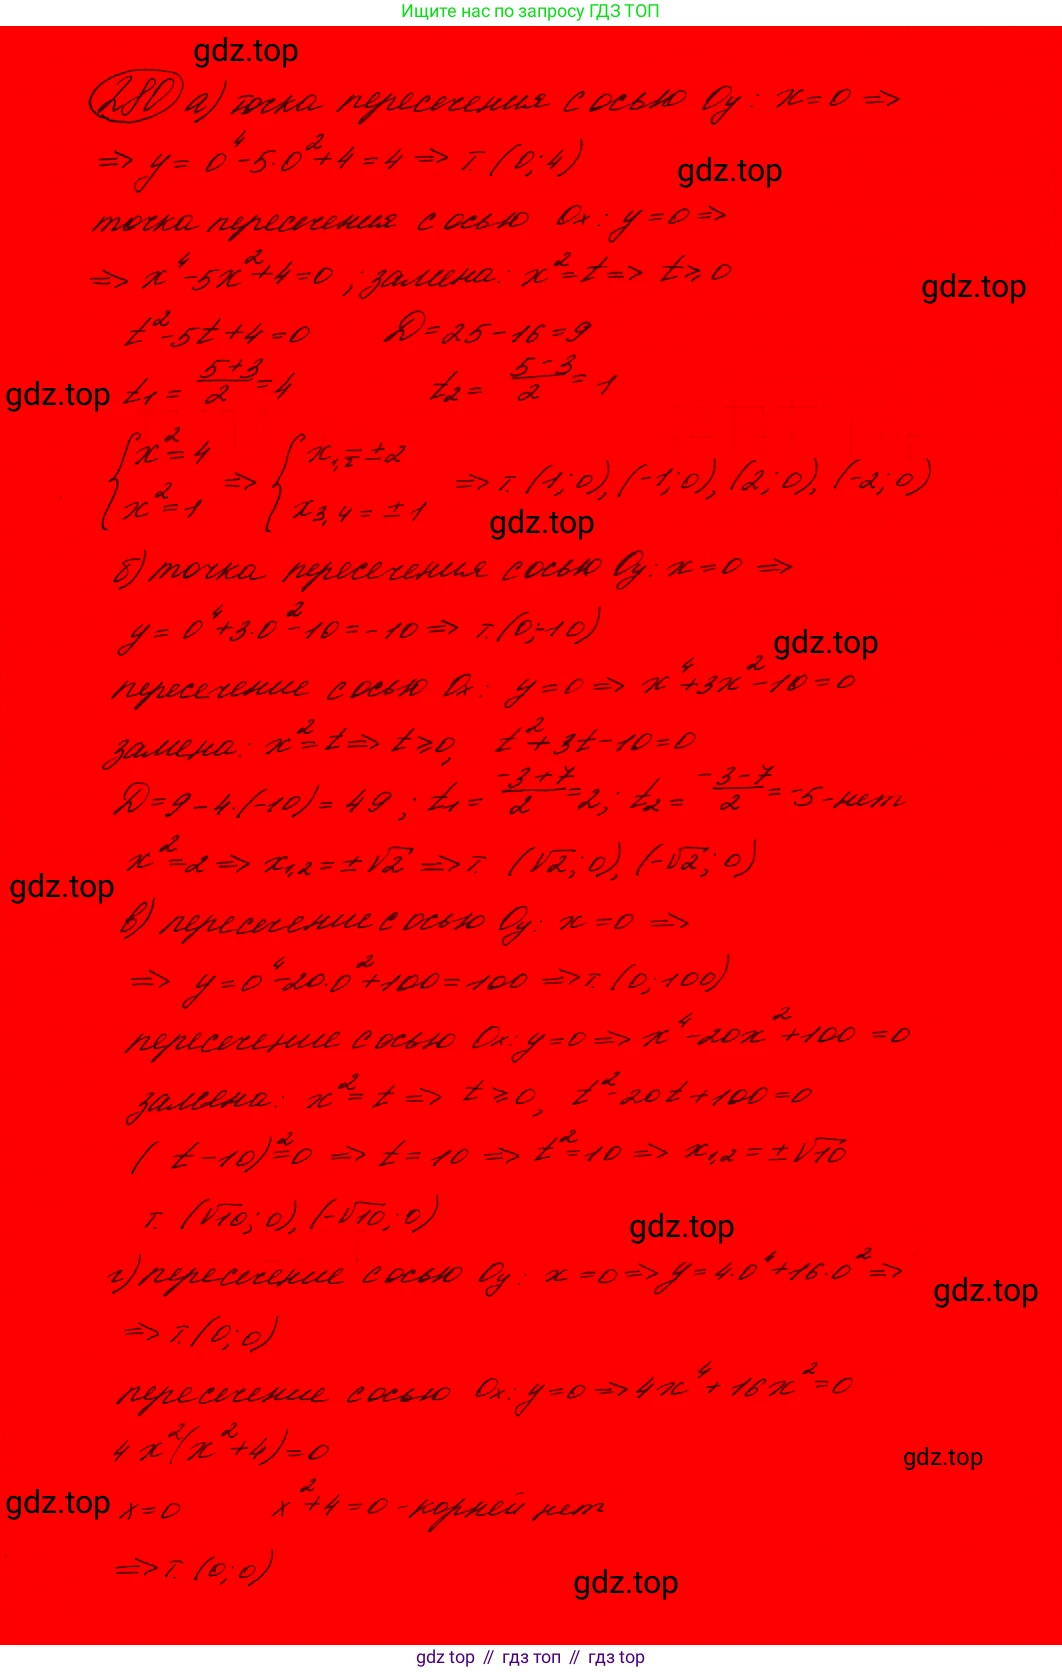 Ищите нас по запросу ГДЗ ТОП
gdz.top
280 а) точка пересечения с осью Oy: x=0 =>
=> y= 0⁴-5·0²+4=4 => т. (0;4)
gdz.top
точка пересечения с осью Ox: y=0 =>
=> x⁴-5x²+4=0 ; замена: x²=t => t≥0
gdz.top
t²-5t+4=0 D=25-16=9
gdz.top
t₁ = (5+3)/2 =4 t₂= (5-3)/2 = 1
{ x²=4 x²=1 => { x₁,₂=±2 x₃,₄=±1 => т. (1;0), (-1;0), (2;0), (-2;0)
gdz.top
б) точка пересечения с осью Oy: x=0 =>
y= 0⁴+3·0²-10=-10 => т.(0;-10)
gdz.top
пересечение с осью Ox: y=0 => x⁴+3x²-10=0
замена: x²=t => t≥0, t²+3t-10=0
D=9-4·(-10)=49 ; t₁= (-3+7)/2 =2; t₂= (-3-7)/2 =-5-нет
x²=2 => x₁,₂=±√2 => т. (√2;0), (-√2;0)
gdz.top
в) пересечение с осью Oy: x=0 =>
=> y=0⁴-20·0²+100=100 => т. (0;100)
пересечение с осью Ox: y=0 => x⁴-20x²+100=0
замена: x²=t => t≥0, t²-20t+100=0
(t-10)²=0 => t=10 => t²=10 => x₁,₂=±√10
т. (√10;0), (-√10;0)
gdz.top
г) пересечение с осью Oy: x=0 => y=4·0⁴+16·0² =>
gdz.top
=> т.(0;0)
пересечение с осью Ox: y=0 => 4x⁴+16x²=0
4x²(x²+4)=0
gdz.top
gdz.top
x=0 x²+4=0 -корней нет
=> т. (0;0)
gdz.top
gdz top // гдз топ // гдз top